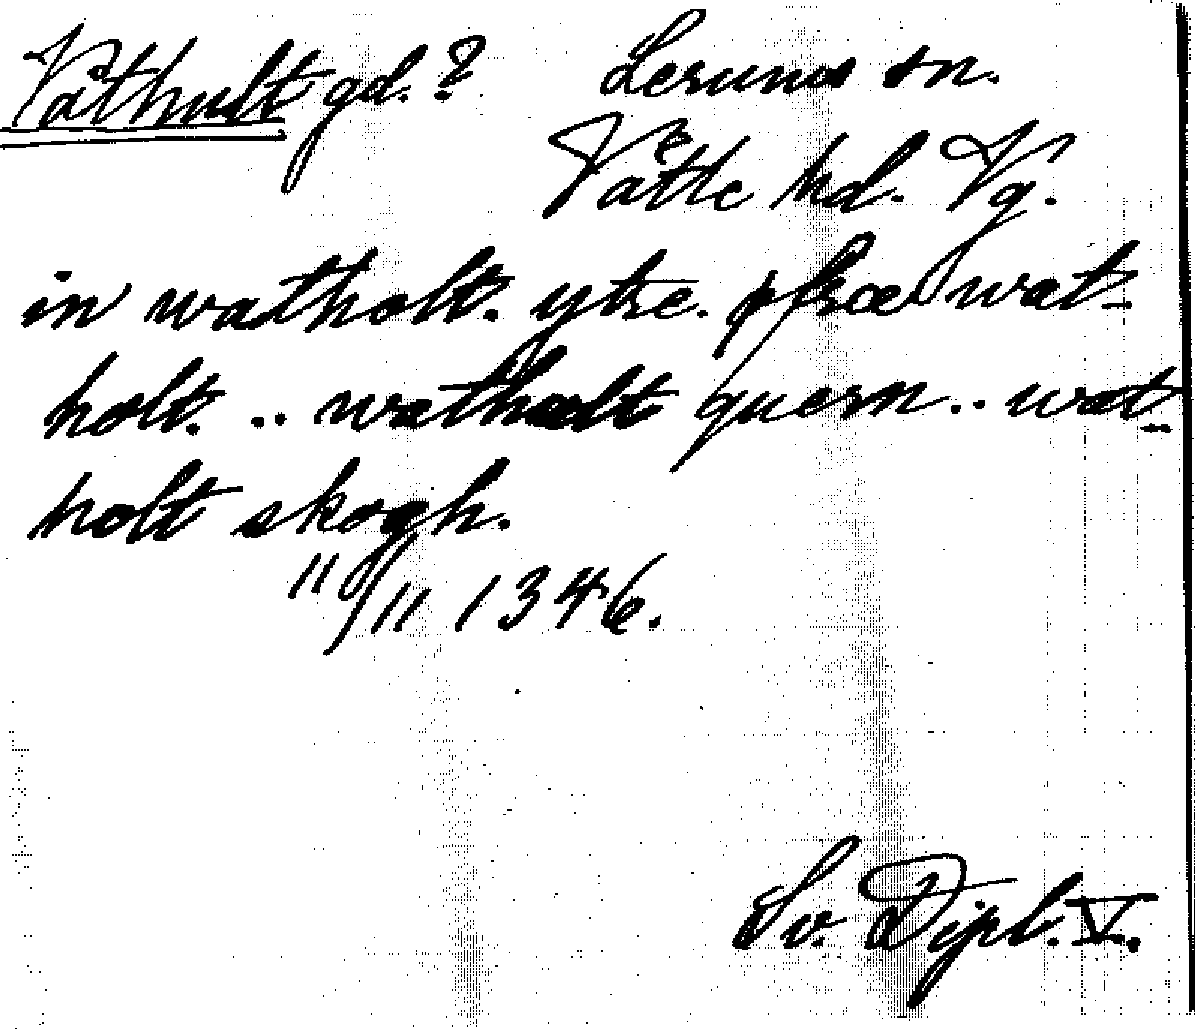 Våthult gd.? Lerums sn.
Vättle hd. Vg.
in watholt. ytre. øfræ wat-
holt. .. wathult quern .. wat-
holt skogh.
"⁰/11 1346.
Sv. Dipl. V.